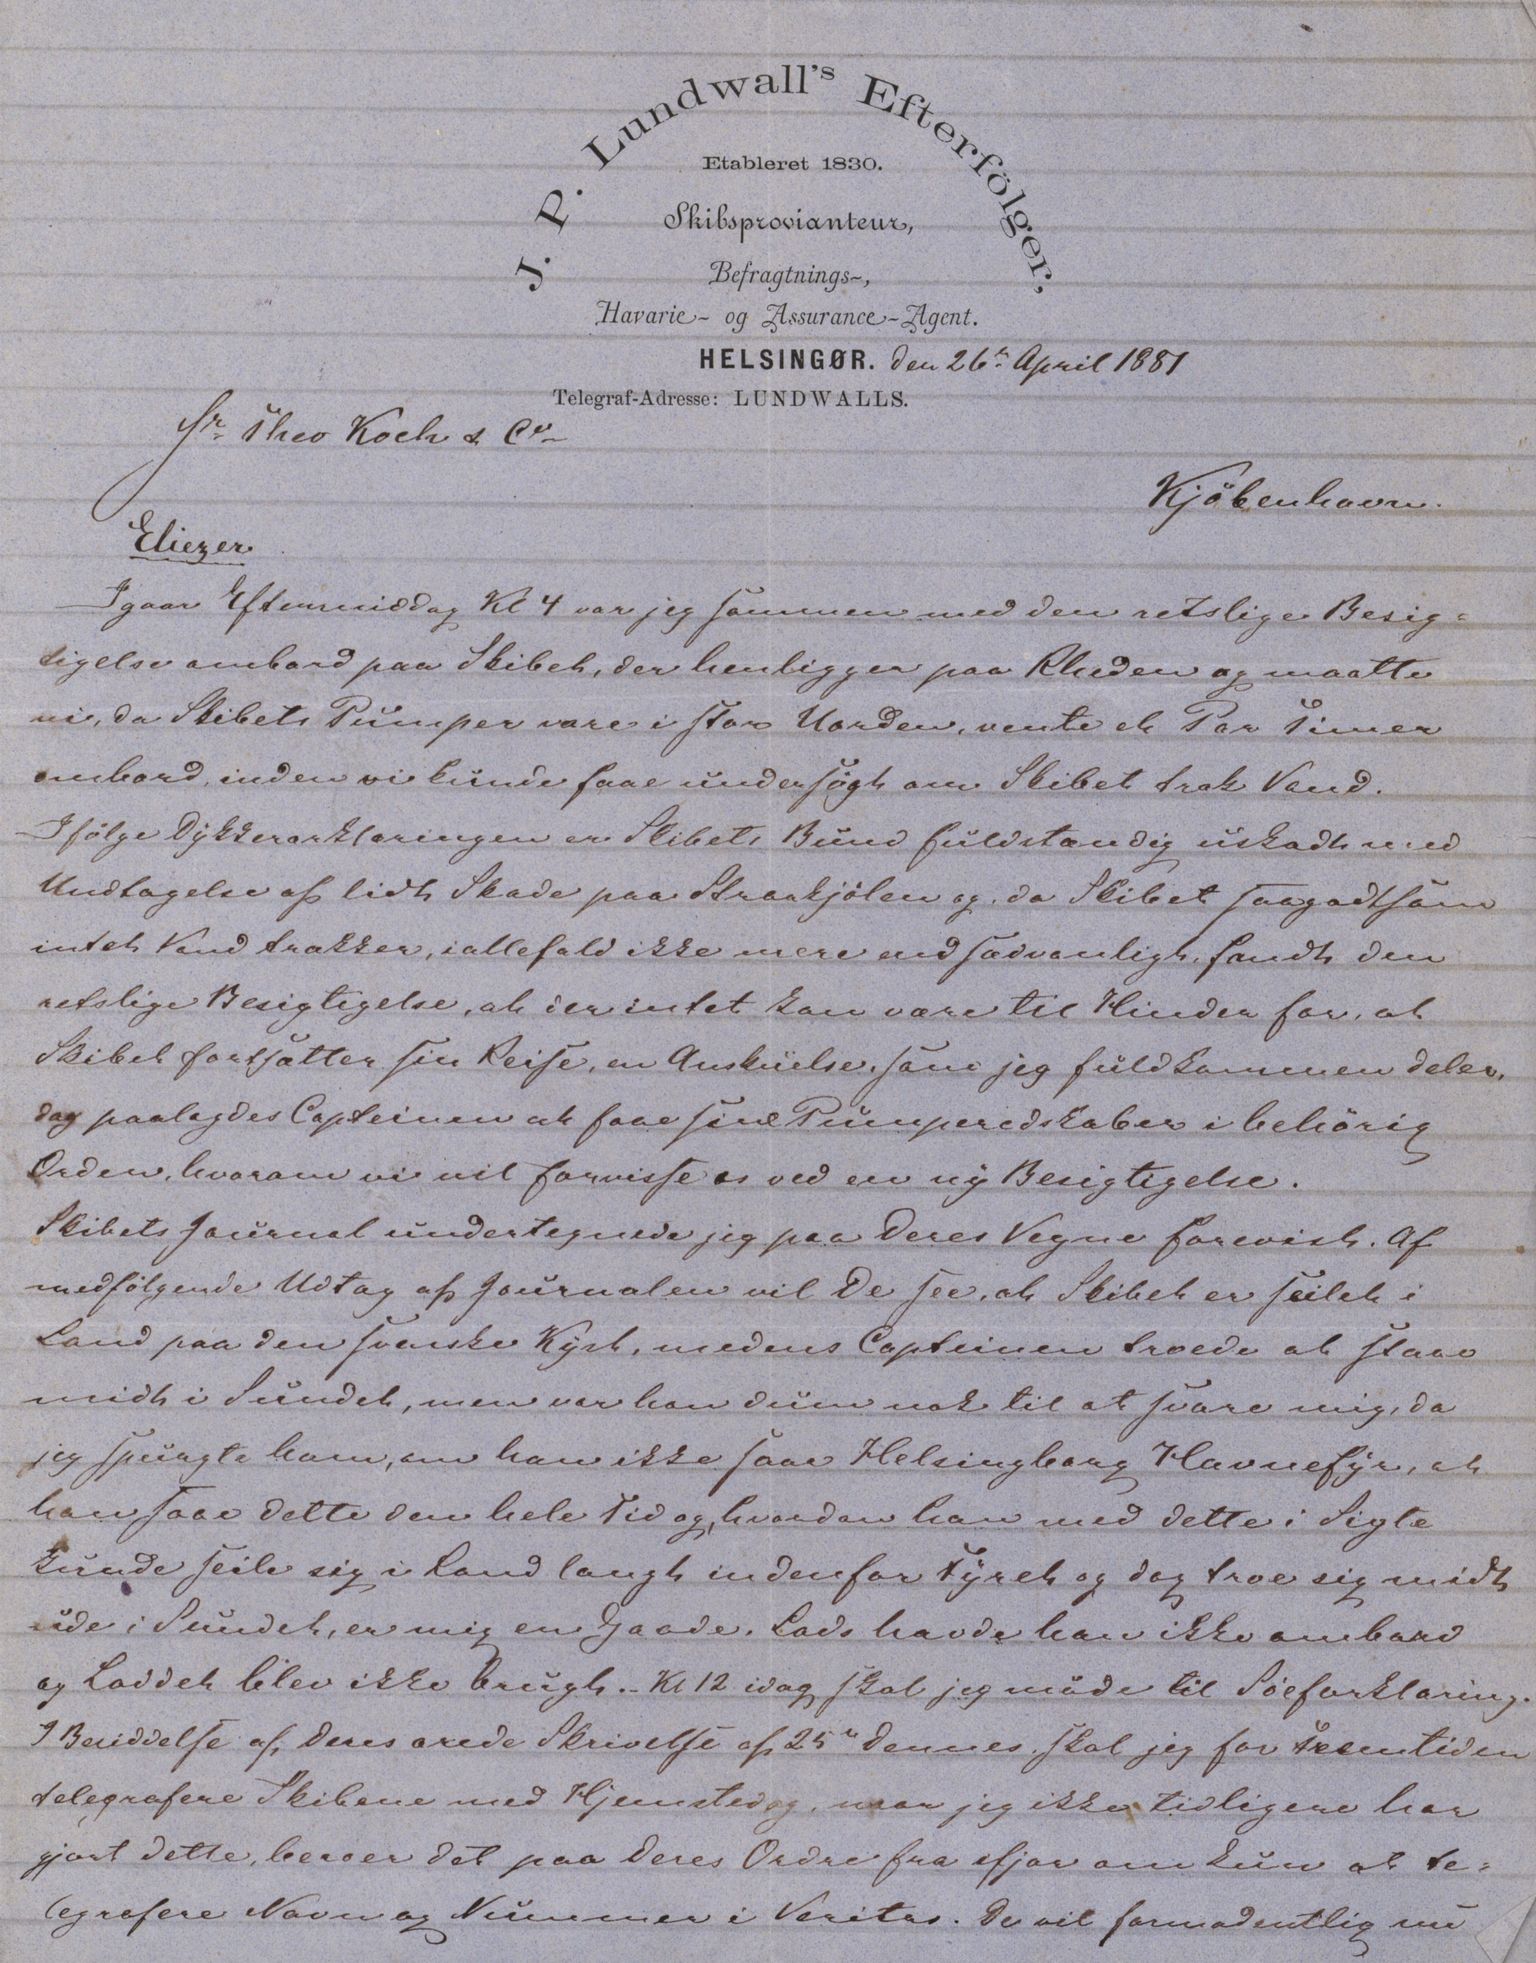 J. P. Lundwall's Efterfölger,
Etableret 1830.
Skibsprovianteur,
Befragtnings-,
Havarie- og Assurance-Agent.
HELSINGØR. den 26de April 1881
Telegraf-Adresse: LUNDWALLS.
Hr. Theo Koch & Co
Kjöbenhavn.
Eliezer
Igaar Eftermiddag Kl 4 var jeg sammen med den retslige Besig-
tigelse ombord paa Skibet, der henligger paa Rheden og maatte
vi, da Skibets Pumper vare i stor Uorden, vente et Par Timer
ombord, inden vi kunde faae undersögt om Skibet trak Vand.
Ifölge Dykkererklæringen er Skibets Bund fuldstændig uskadt med
Undtagelse af lidt Skade paa Straakjölen og, da Skibet saagodtsom
intet Vand trækker, iallefald ikke mere end sædvanligt, fandt den
retslige Besigtigelse, at der intet kan være til Hinder for, at
Skibet fortsætter sin Reise, en Anskuelse, som jeg fuldkommen deler,
dog paalagdes Capteinen at faae sine Pumperedskaber i behörig
Orden, hvorom vi vil forvisse os ved en ny Besigtigelse.
Skibets Journal undertegnede jeg paa Deres Vegne forevist. Af
medfölgende Udtog af Journalen vil De see, at Skibet er seilet i
Land paa den svenske Kyst, medens Capteinen troede at staae
midt i Sundet, men var han dum nok til at svare mig, da
jeg spurgte ham, om han ikke saae Helsingborg Havnefyr, at
han saae dette den hele Tid og, hvordan han med dette i Sigte
kunde seile sig i Land langt indenfor Fyret og dog troe sig midt
ude i Sundet, er mig en Gaade. Lods havde han ikke ombord
og Loddet blev ikke brugt. - Kl 12 idag skal jeg möde til Söeforklaring.
I Besiddelse af Deres ærede Skrivelse af 25de dennes, skal jeg for Fremtiden
telegrafere Skibene med Hjemsted og, naar jeg ikke tidligere har
gjort dette, beroer det paa Deres Ordre fra ifjor om kun at te-
legrafere Navn og Nummer i Veritas. De vil formodentlig nu